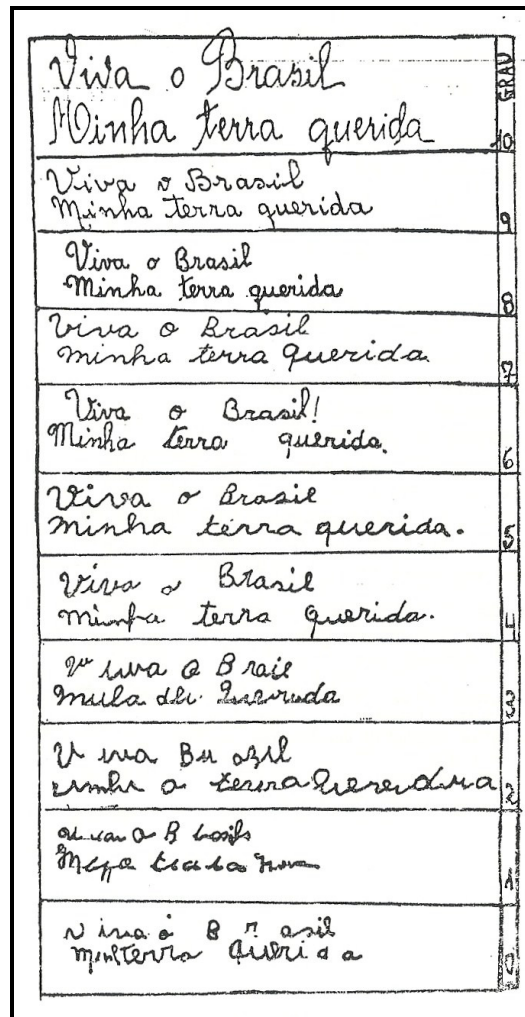 GRAU
Viva o Brasil
Minha terra querida
10
Viva o Brasil
Minha terra querida
9
Viva o Brasil
Minha terra querida
8
viva o Brasil
minha terra querida.
7
Viva o Brasil!
Minha terra querida.
6
Viva o Brasil
minha terra querida.
5
Viva o Brasil
minha terra querida.
4
uva o B
3
V iva
a terra
2
o B
1
v iva o B r asil
0